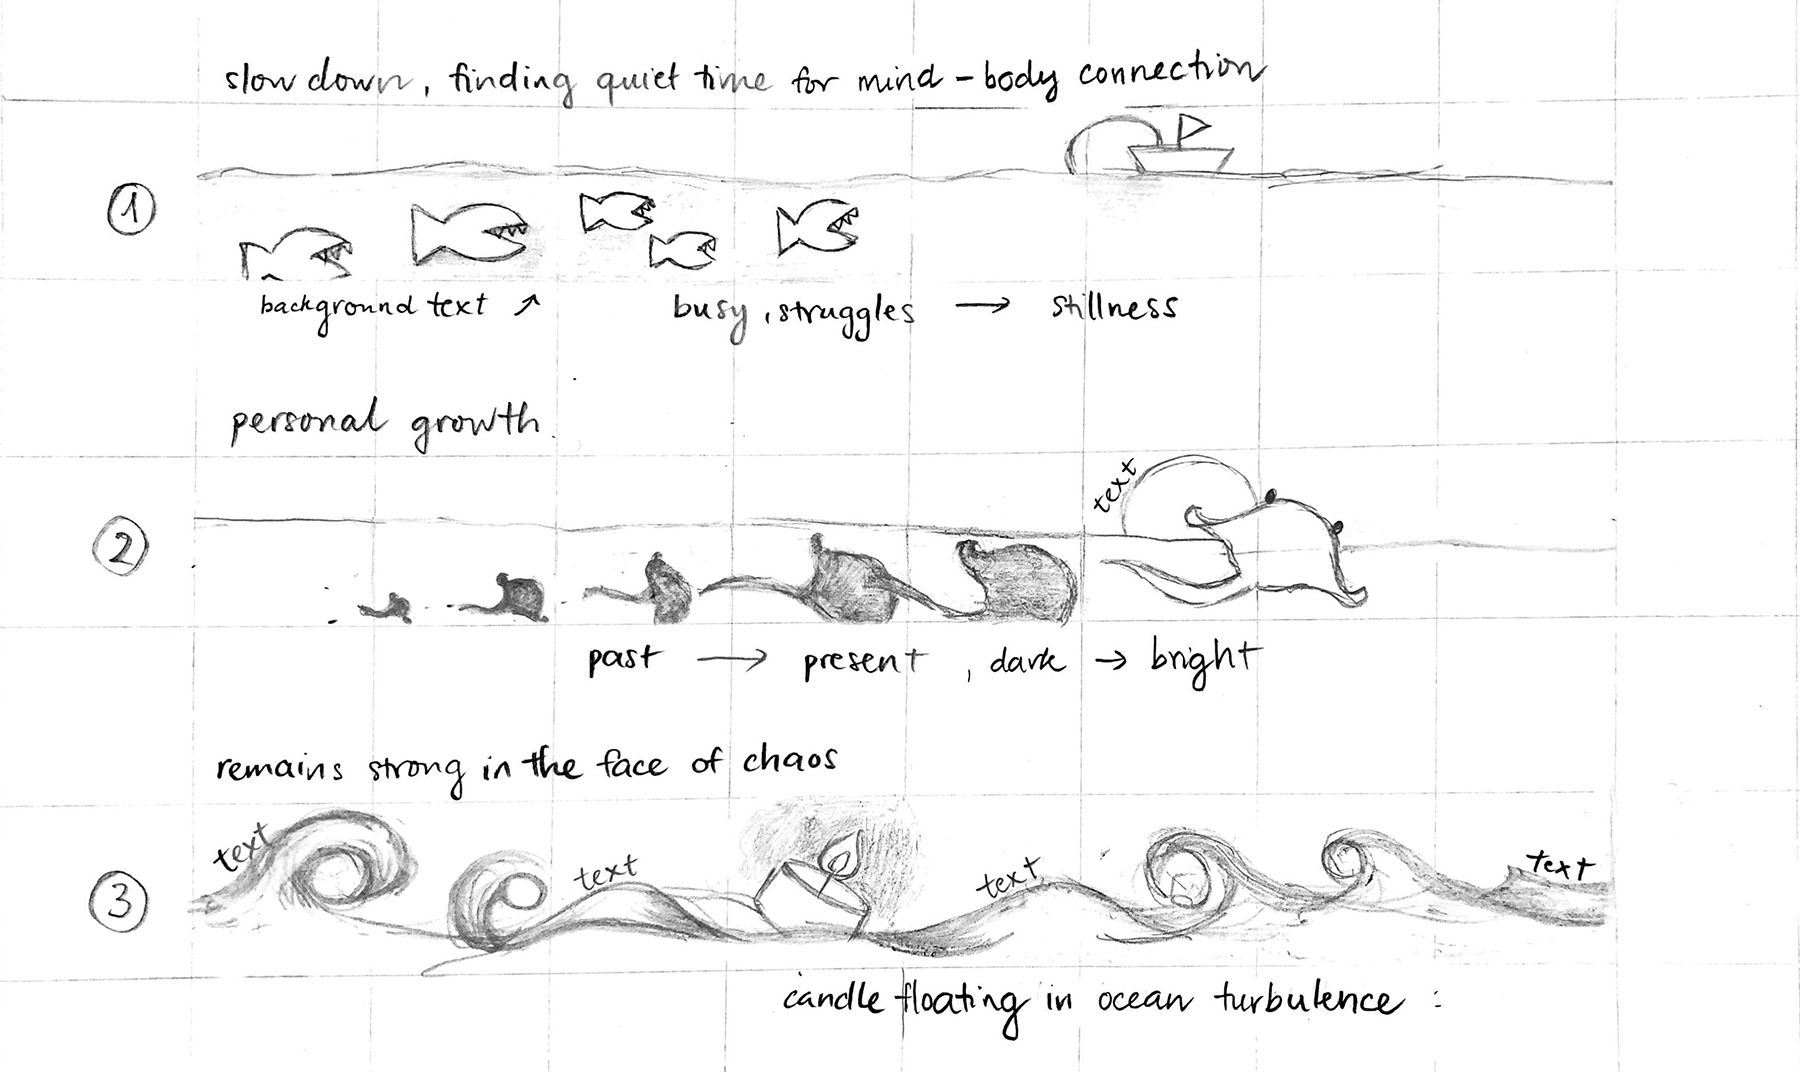 slow down, finding quiet time for mind-body connection
1
background text ↗ busy, struggles → stillness
personal growth.
text
2
past → present, dark → bright
remains strong in the face of chaos
text
text
text
text
3
candle floating in ocean turbulence :